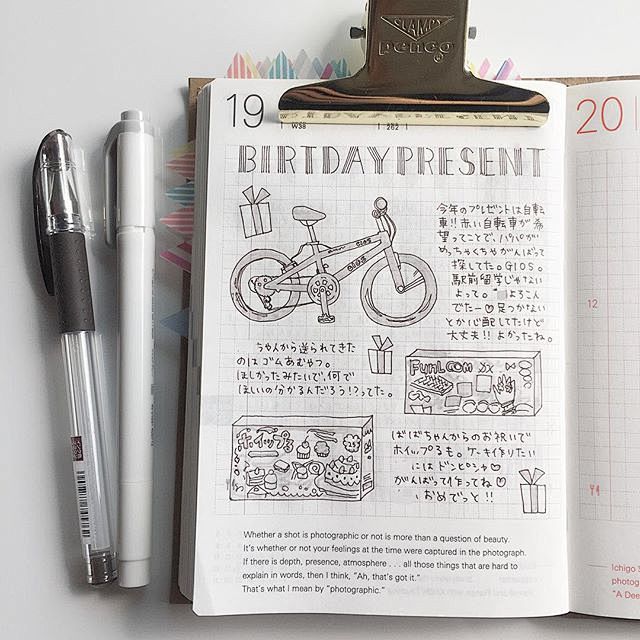 STAMPY
penco
19
20
W38
262
BIRTDAY PRESENT
今年のプレゼントは自転
車!!赤い自転車が希
望ってことで、パパが
めっちゃくちゃがんばって
探してた。GIOS。
駅前留学じゃない
よって。 よろこん
でたー♡足つかない
とか心配してたけど
大丈夫!!よかったね。
GIOS
ちゃんから送られてきた
のはゴムあむやつ。
ほしかったみたいで、何で
ほしいの分かるんだろう!?ってた。
FunLOOM
ホイップる
ばばちゃんからのお祝いで
ホイップるも。ケーキ作りたい
にはドンピシャ♡
がんばって作ってね♡
おめでっと!!
12
Whether a shot is photographic or not is more than a question of beauty.
It's whether or not your feelings at the time were captured in the photograph.
If there is depth, presence, atmosphere . . . all those things that are hard to
explain in words, then I think, "Ah, that's got it."
That's what I mean by "photographic."
Ichigo S
photog
"A Dee